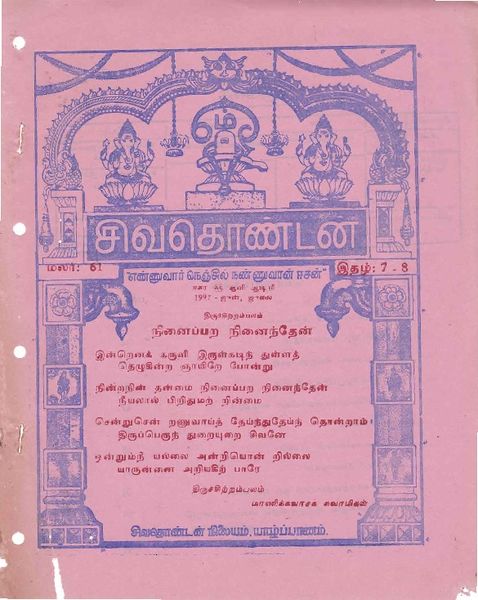 ஓம்
சிவதொண்டன்
மலர்: 61
இதழ்: 7 - 8
"எண்ணுவார் நெஞ்சில் நண்ணுவான் ஈசன்"
1997 - ஜுன், ஜுலை
திருச்சிற்றம்பலம்
நினைப்பற நினைந்தேன்
இன்றெனக் கருளி இருள்கடிந் துள்ளத்
தெழுகின்ற ஞாயிறே போன்று
நின்றநின் தன்மை நினைப்பற நினைந்தேன்
நீயலால் பிறிதுமற் றின்மை
சென்றுசென் றணுவாய்த் தேய்ந்துதேய்ந் தொன்றாம்
திருப்பெருந் துறையுறை சிவனே
ஒன்றும்நீ யல்லை அன்றியொன் றில்லை
யாருன்னை அறியகிற் பாரே
திருச்சிற்றம்பலம்
மாணிக்கவாசக சுவாமிகள்
சிவதொண்டன் நிலையம், யாழ்ப்பாணம்.